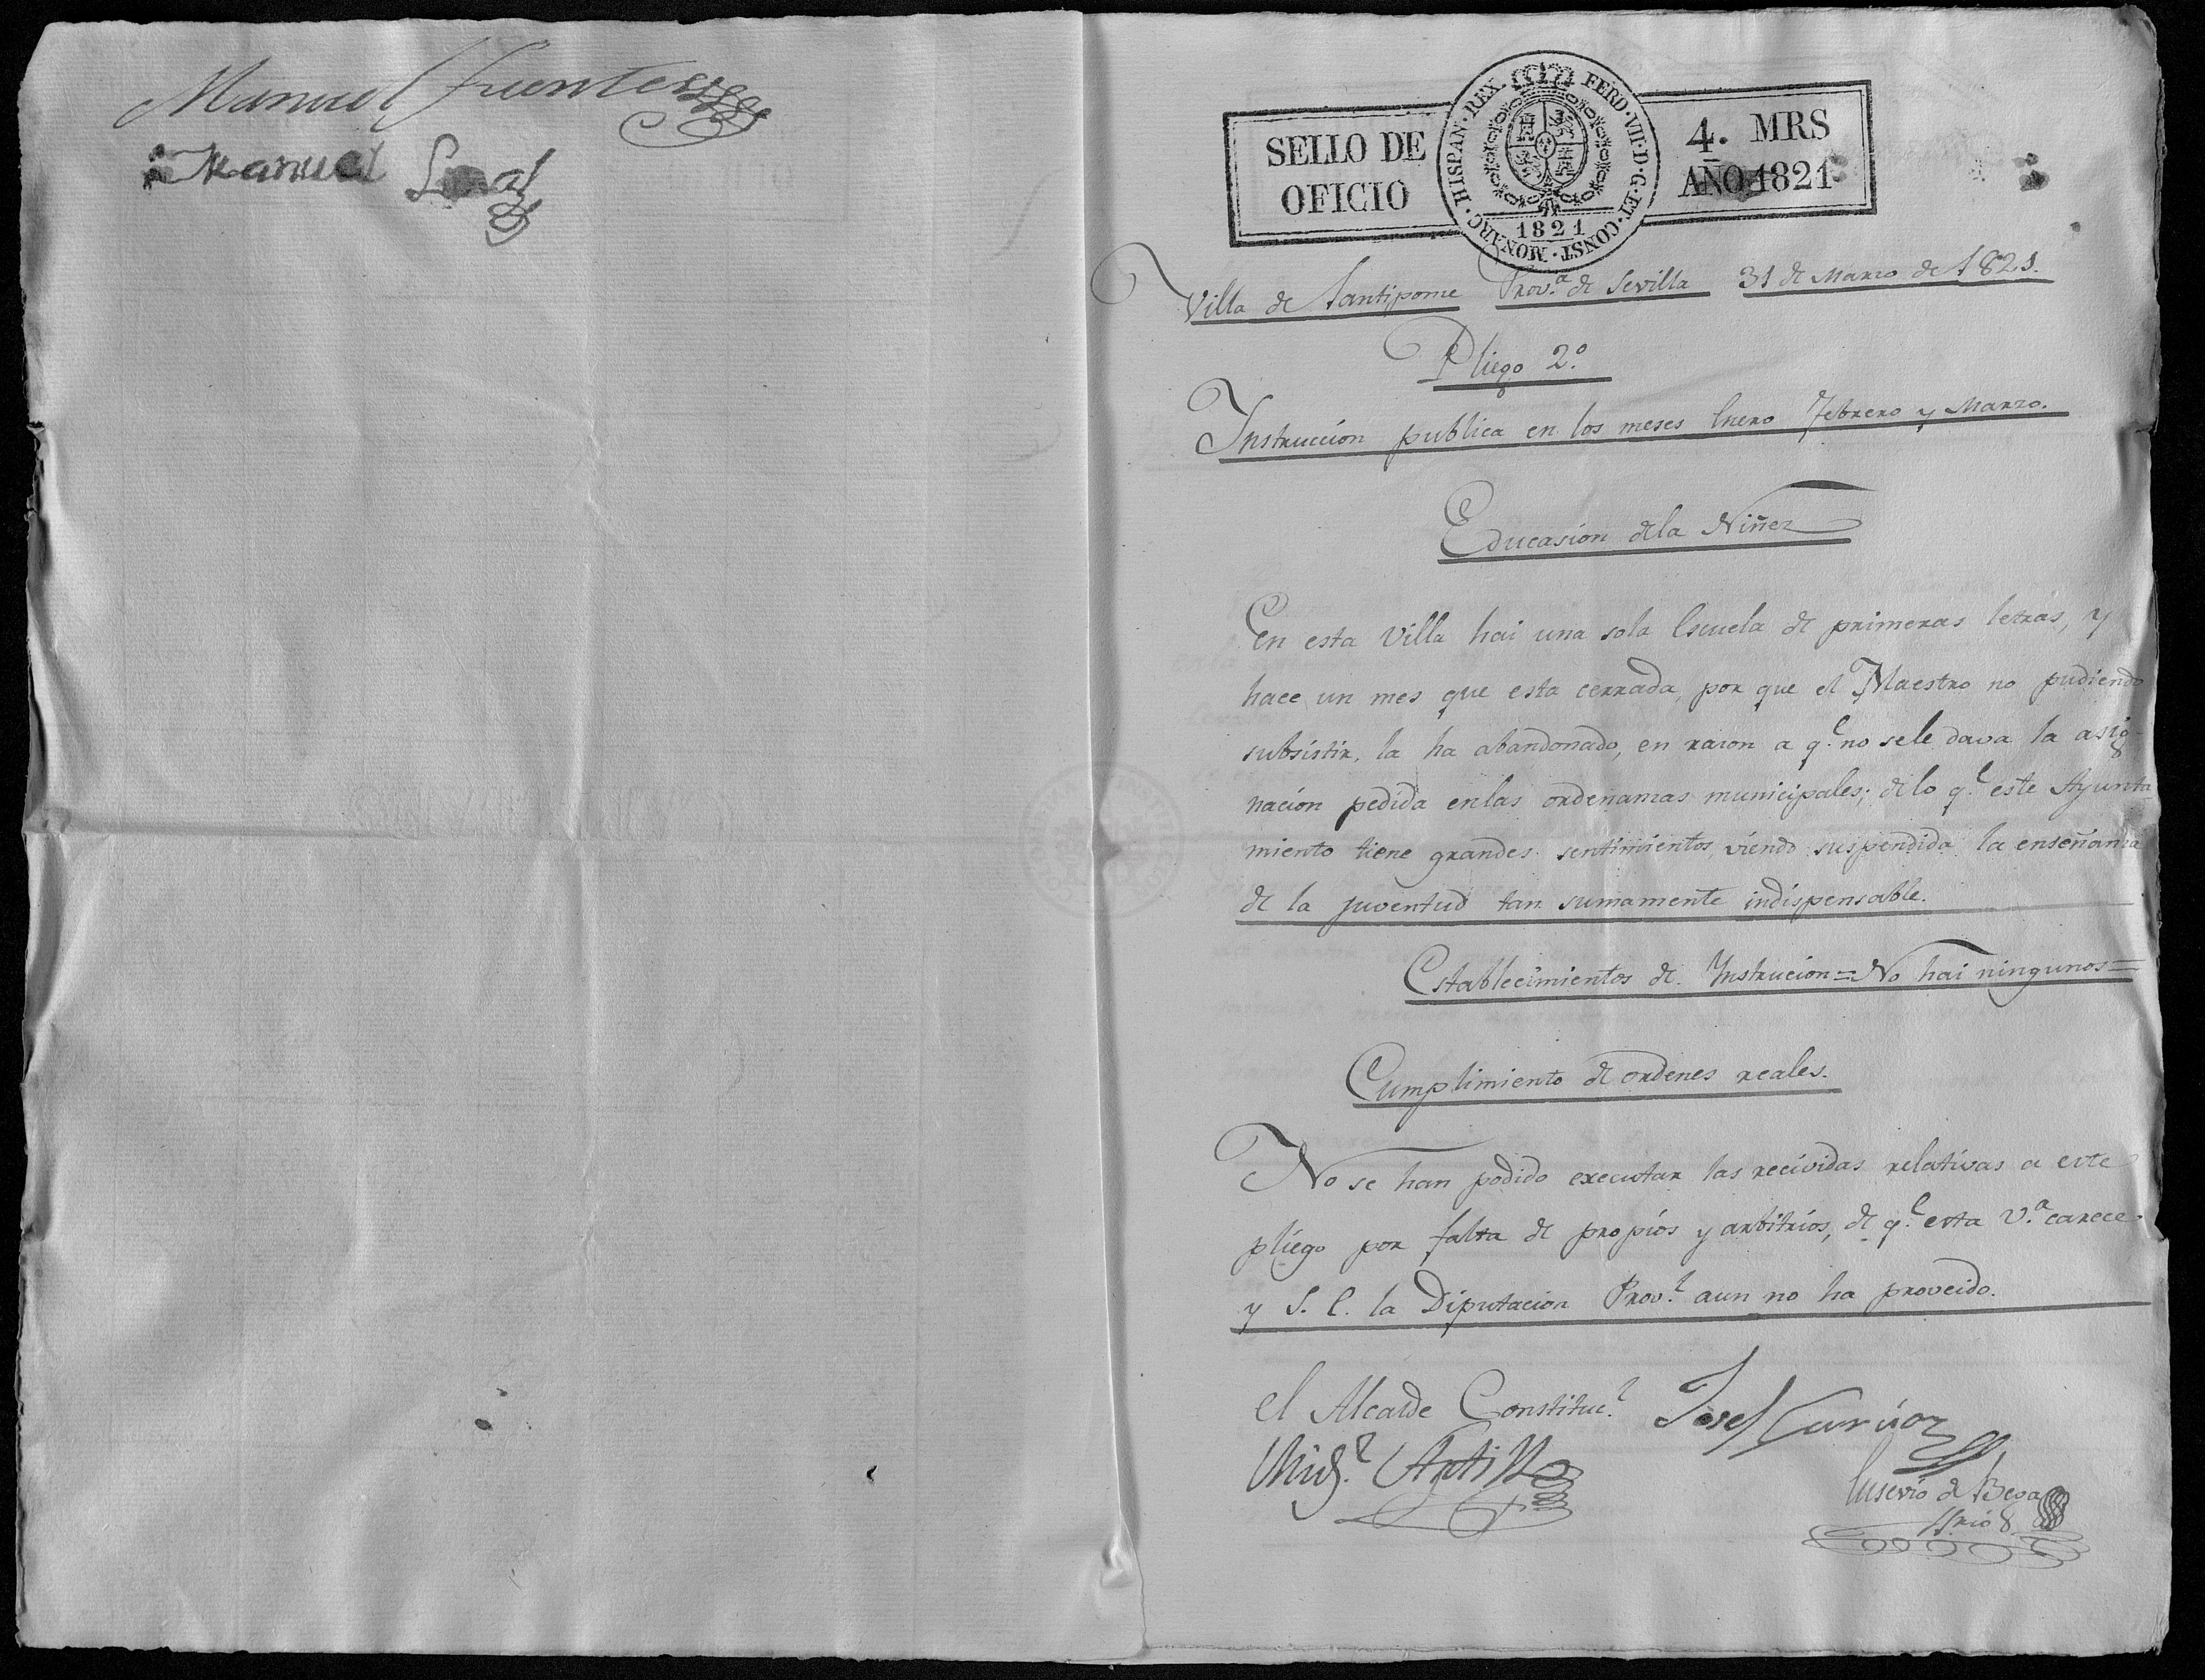 Manuel Fuentes
Manuel
SELLO DE
OFICIO
HISPAN. REX. FERD. VII. D. G. ET. CONST. MONARC.
1821
4. MRS
AÑO 1821
Villa de Santipome Prov.ª de Sevilla 31 de Marzo de 1821.
Pliego 2.º
Instruccion publica en los meses Enero Febrero y Marzo.
Educasion dela Niñez
En esta Villa hai una sola Escuela de primeras letras, y
hace un mes que esta cerrada, por que el Maestro no pudiendo
subsistir, la ha abandonado, en razon a q.e no sele dava la asig-
nacion pedida enlas ordenanzas municipales; delo q.e este Ayunta-
miento tiene grandes sentimientos, viendo suspendida la enseñanza
de la juventud tan sumamente indispensable.
Establecimientos de Instrucion = No hai ningunos =
Cumplimiento de ordenes reales.
No se han podido executar las recividas relativas a este
pliego por falta de propios y arbitrios, de q.e esta V.ª carece
y S. E. la Diputacion Prov.l aun no ha proveido.
El Alcalde Constituc.l
Josef
Eusevio de Bega
S.rio